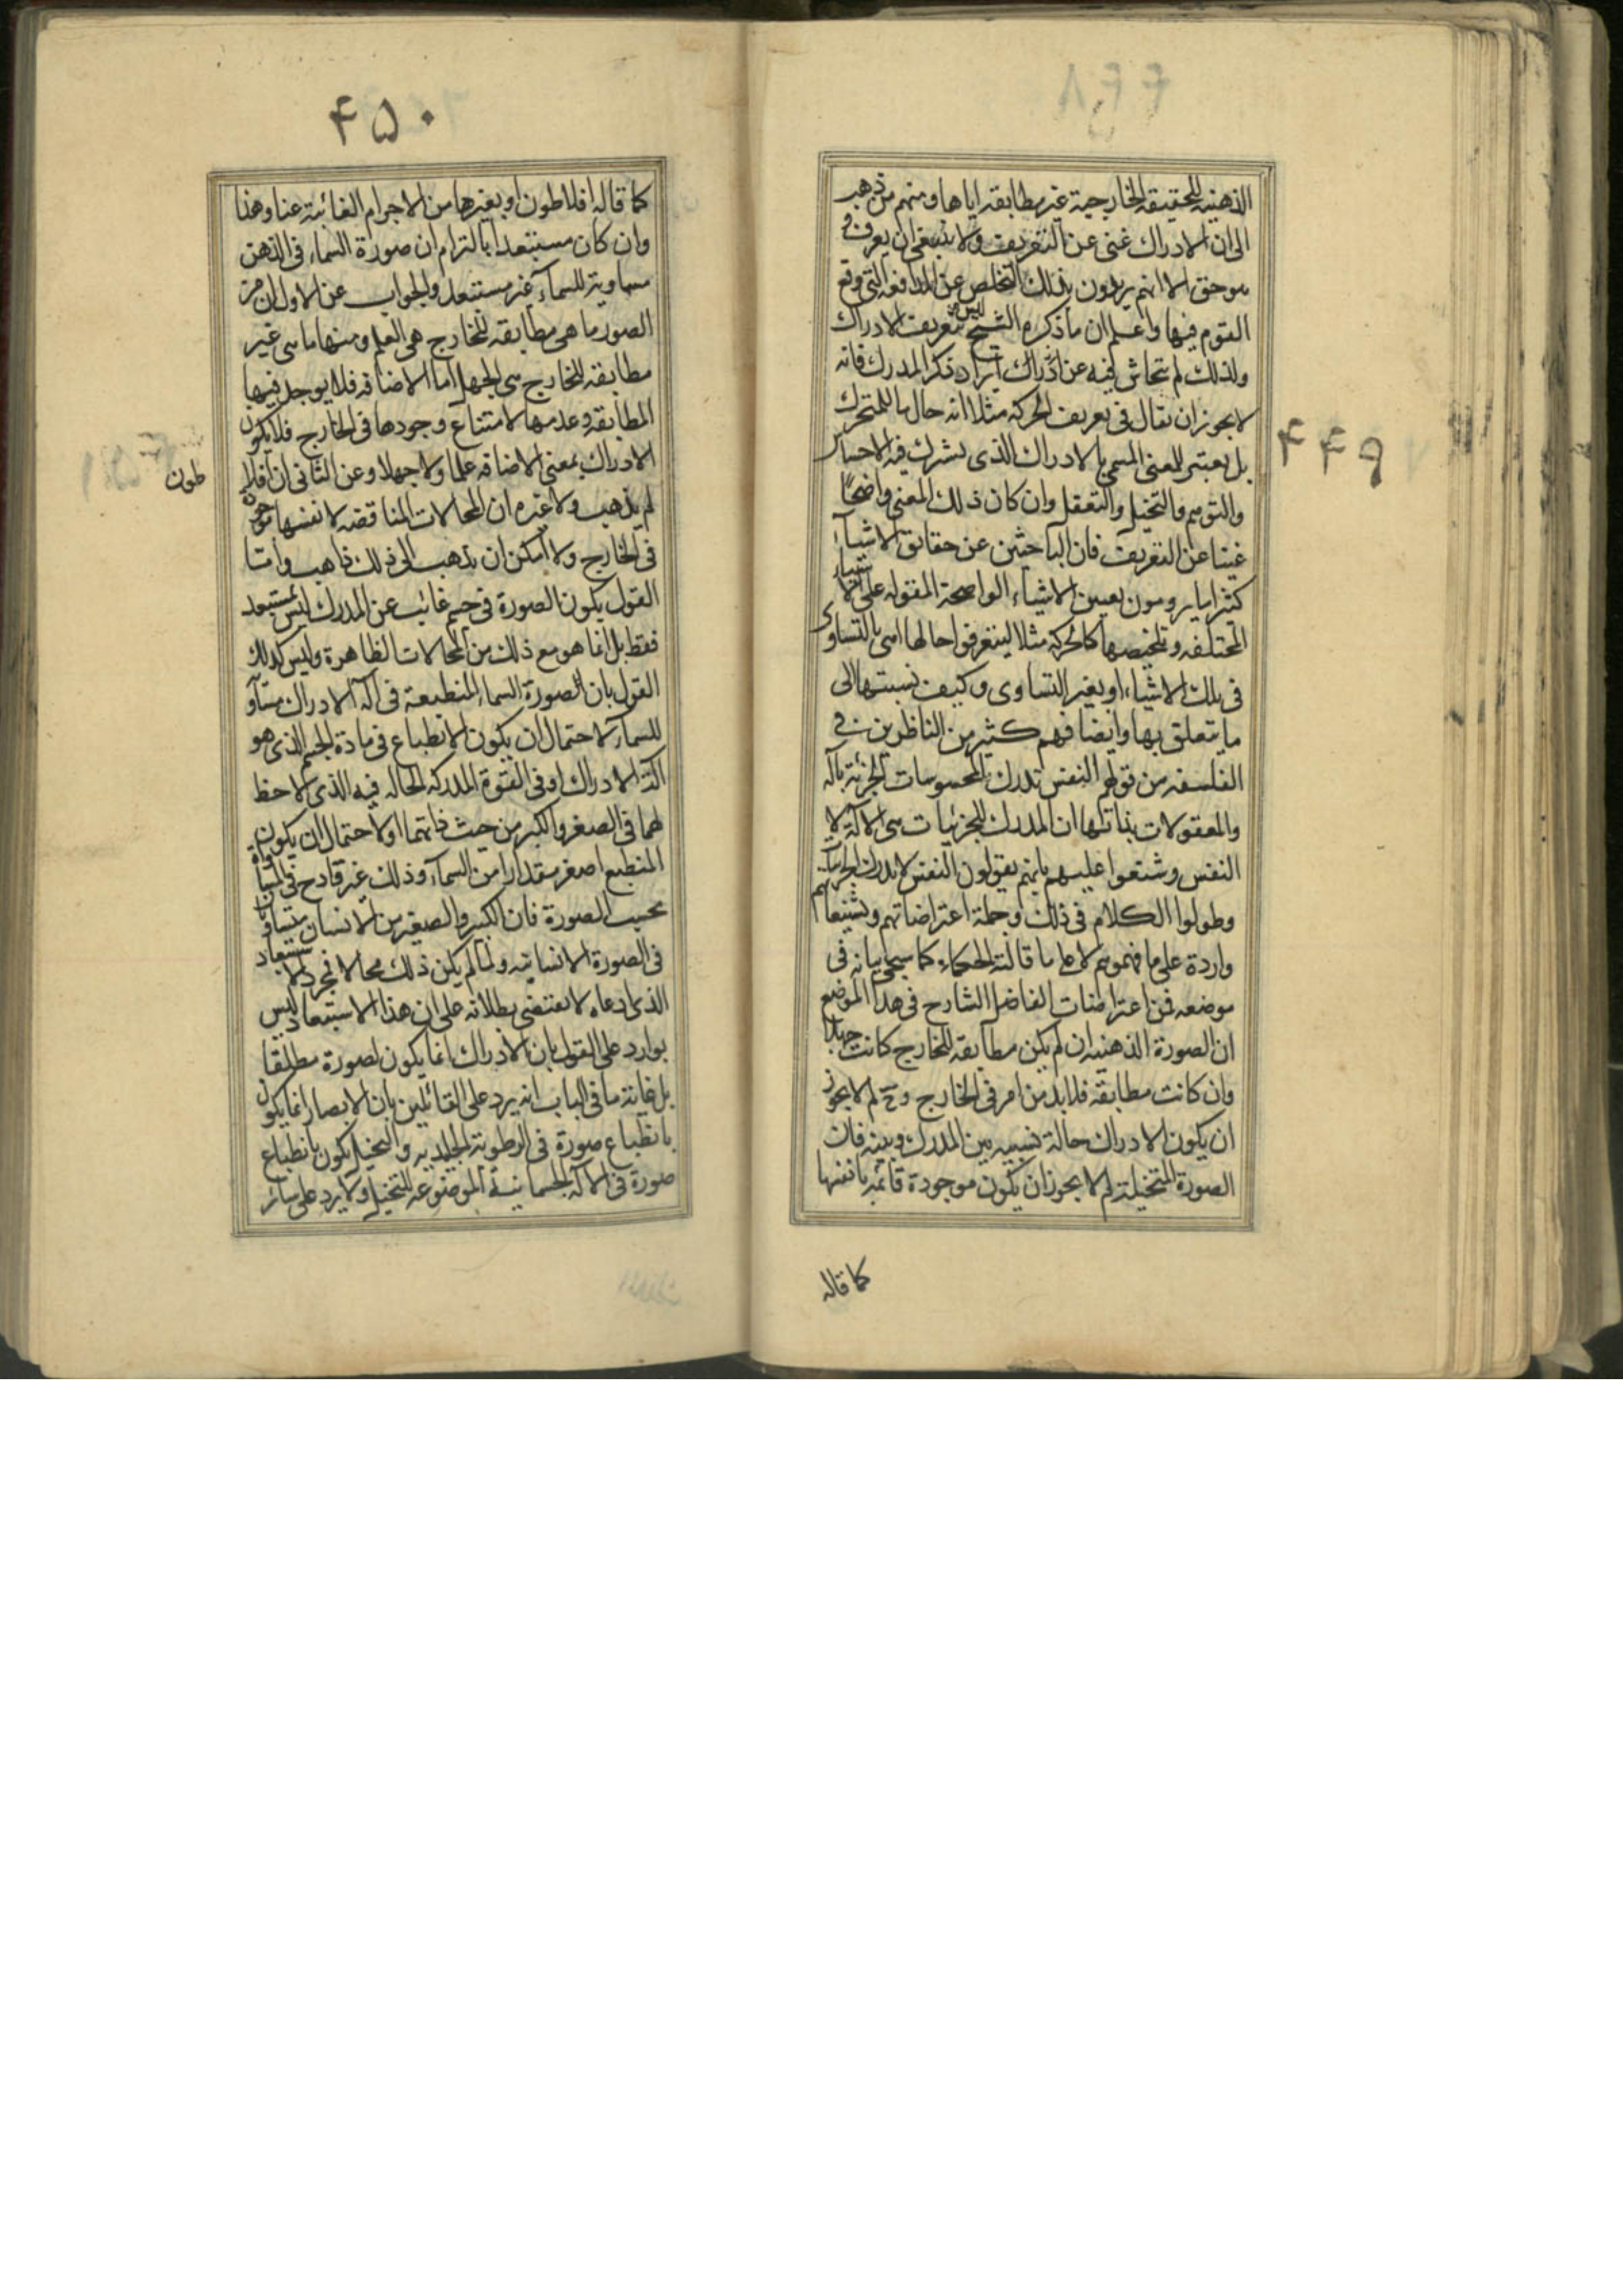 الذهنیه للحقیقه الخارجیة غیر مطابقه ایاها ومنهم من ذهب
الی ان الادراک غنی عن التعریف ولا ینبغی ان یعرف فی
هو حق الا انهم یریدون بذلک التخلص عن المدافعه التی وقع
القوم فیها واعلم ان ما ذکره الشیخ لیس تعریف الادراک
ولذلک لم یتحاش فیه عن ایراد ذکر المدرک فانه
لا یجوز ان یقال فی تعریف الحرکه مثلا انه حال ما للمتحرک
بل تعیین للمعنی المسمی بالادراک الذی یشترک فیه الاحساس
والتوهم والتخیل والتعقل وان کان ذلک المعنی واضحا
غنیا عن التعریف فان الباحثین عن حقایق الاشیآء
کثیرا ما یرومون تعیین الاشیاء الواضحة المقوله علی الاشیاء
المختلفه وتلخیصها کالحرکه مثلا لیتعرفوا حالها اهی بالتساوی
فی تلک الاشیاء او بغیر التساوی وکیف نسبتها الی
ما یتعلق بها وایضا فهم کثیر من الناظرین فی
الفلسفه من قولهم النفس تدرک المحسوسات الجزئیة بآله
والمعقولات بذاتها ان المدرک للجزئیات هی الآلة لا
النفس وشنعوا علیهم بانهم یقولون النفس لا تدرک الجزئیات
وطولوا الکلام فی ذلک وجملة اعتراضاتهم وتشنیعاتهم
واردة علی ما فهموهم لا علی ما قالته الحکماء کما سیجیء بیانه فی
موضعه فمن اعتراضات الفاضل الشارح فی هذا الموضع
ان الصورة الذهنیه ان لم یکن مطابقه للخارج کانت جهلا
وان کانت مطابقه فلا بد من امر فی الخارج وح لم لا یجوز
ان یکون الادراک حالة نسبیه بین المدرک وبینه فان
الصورة المتخیلة لم لا یجوز ان یکون موجودة قائمه بانفسها
کما قاله
۴۴۹
۴۵۰
کما قاله افلاطون او بغیرها من الاجرام الغائبة عنا وهذا
وان کان مستبعدا بالتزام ان صورة السماء فی الذهن
مساویة للسمآء غیر مستبعد والجواب عن الاول ان من
الصور ما هی مطابقه للخارج هی العلم ومنها ما هی غیر
مطابقه للخارج هی الجهل اما الاضافه فلا یوجد فیها
المطابقه وعدمها لامتناع وجودها فی الخارج فلا یکون
الادراک بمعنی الاضافه علما ولا جهلا وعن الثانی ان افلا
طون
لم یذهب ولا غیره ان المحالات المناقضه لانفسها موجودة
فی الخارج ولا امکن ان یذهب الی ذلک ذاهب واما
القول بکون الصورة فی جسم غائب عن المدرک لیس بمستبعد
فقط بل انما هو مع ذلک من المحالات الظاهرة ولیس کذلک
القول بان الصورة السماء المنطبعة فی آلة الادراک مساو
للسمآء لاحتمال ان یکون الانطباع فی مادة الجسم الذی هو
آلة الادراک او فی القوة المدرکه الحاله فیه الذی لا حظ
لهما فی الصغر والکبر من حیث ذاتهما اولا حتمال ان یکون
المنطبع اصغر مقدارا من السمآء وذلک غیر قادح فی المساواة
بحسب الصورة فان الکبیر والصغیر من الانسان متساویان
فی الصورة الانسانیه ولما لم یکن ذلک محالا فمجرد الاستبعاد
الذی ادعاه لا یقتضی بطلانه علی ان هذا الاستبعاد لیس
بوارد علی القول بان الادراک انما یکون لصورة مطلقا
بل غایة ما فی الباب انه یرد علی القائلین بان الابصار انما یکون
بانطباع صورة فی الرطوبة الجلیدیه والتخیل یکون بانطباع
صورة فی الآله الجسمانیة الموضوعه للتخیل ولا یرد علی سائر